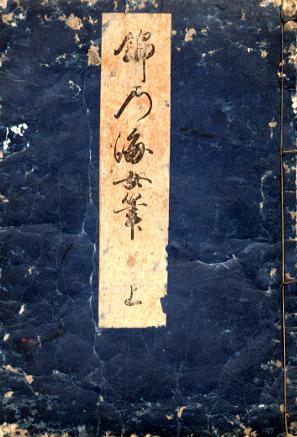 錦乃海女筆 上